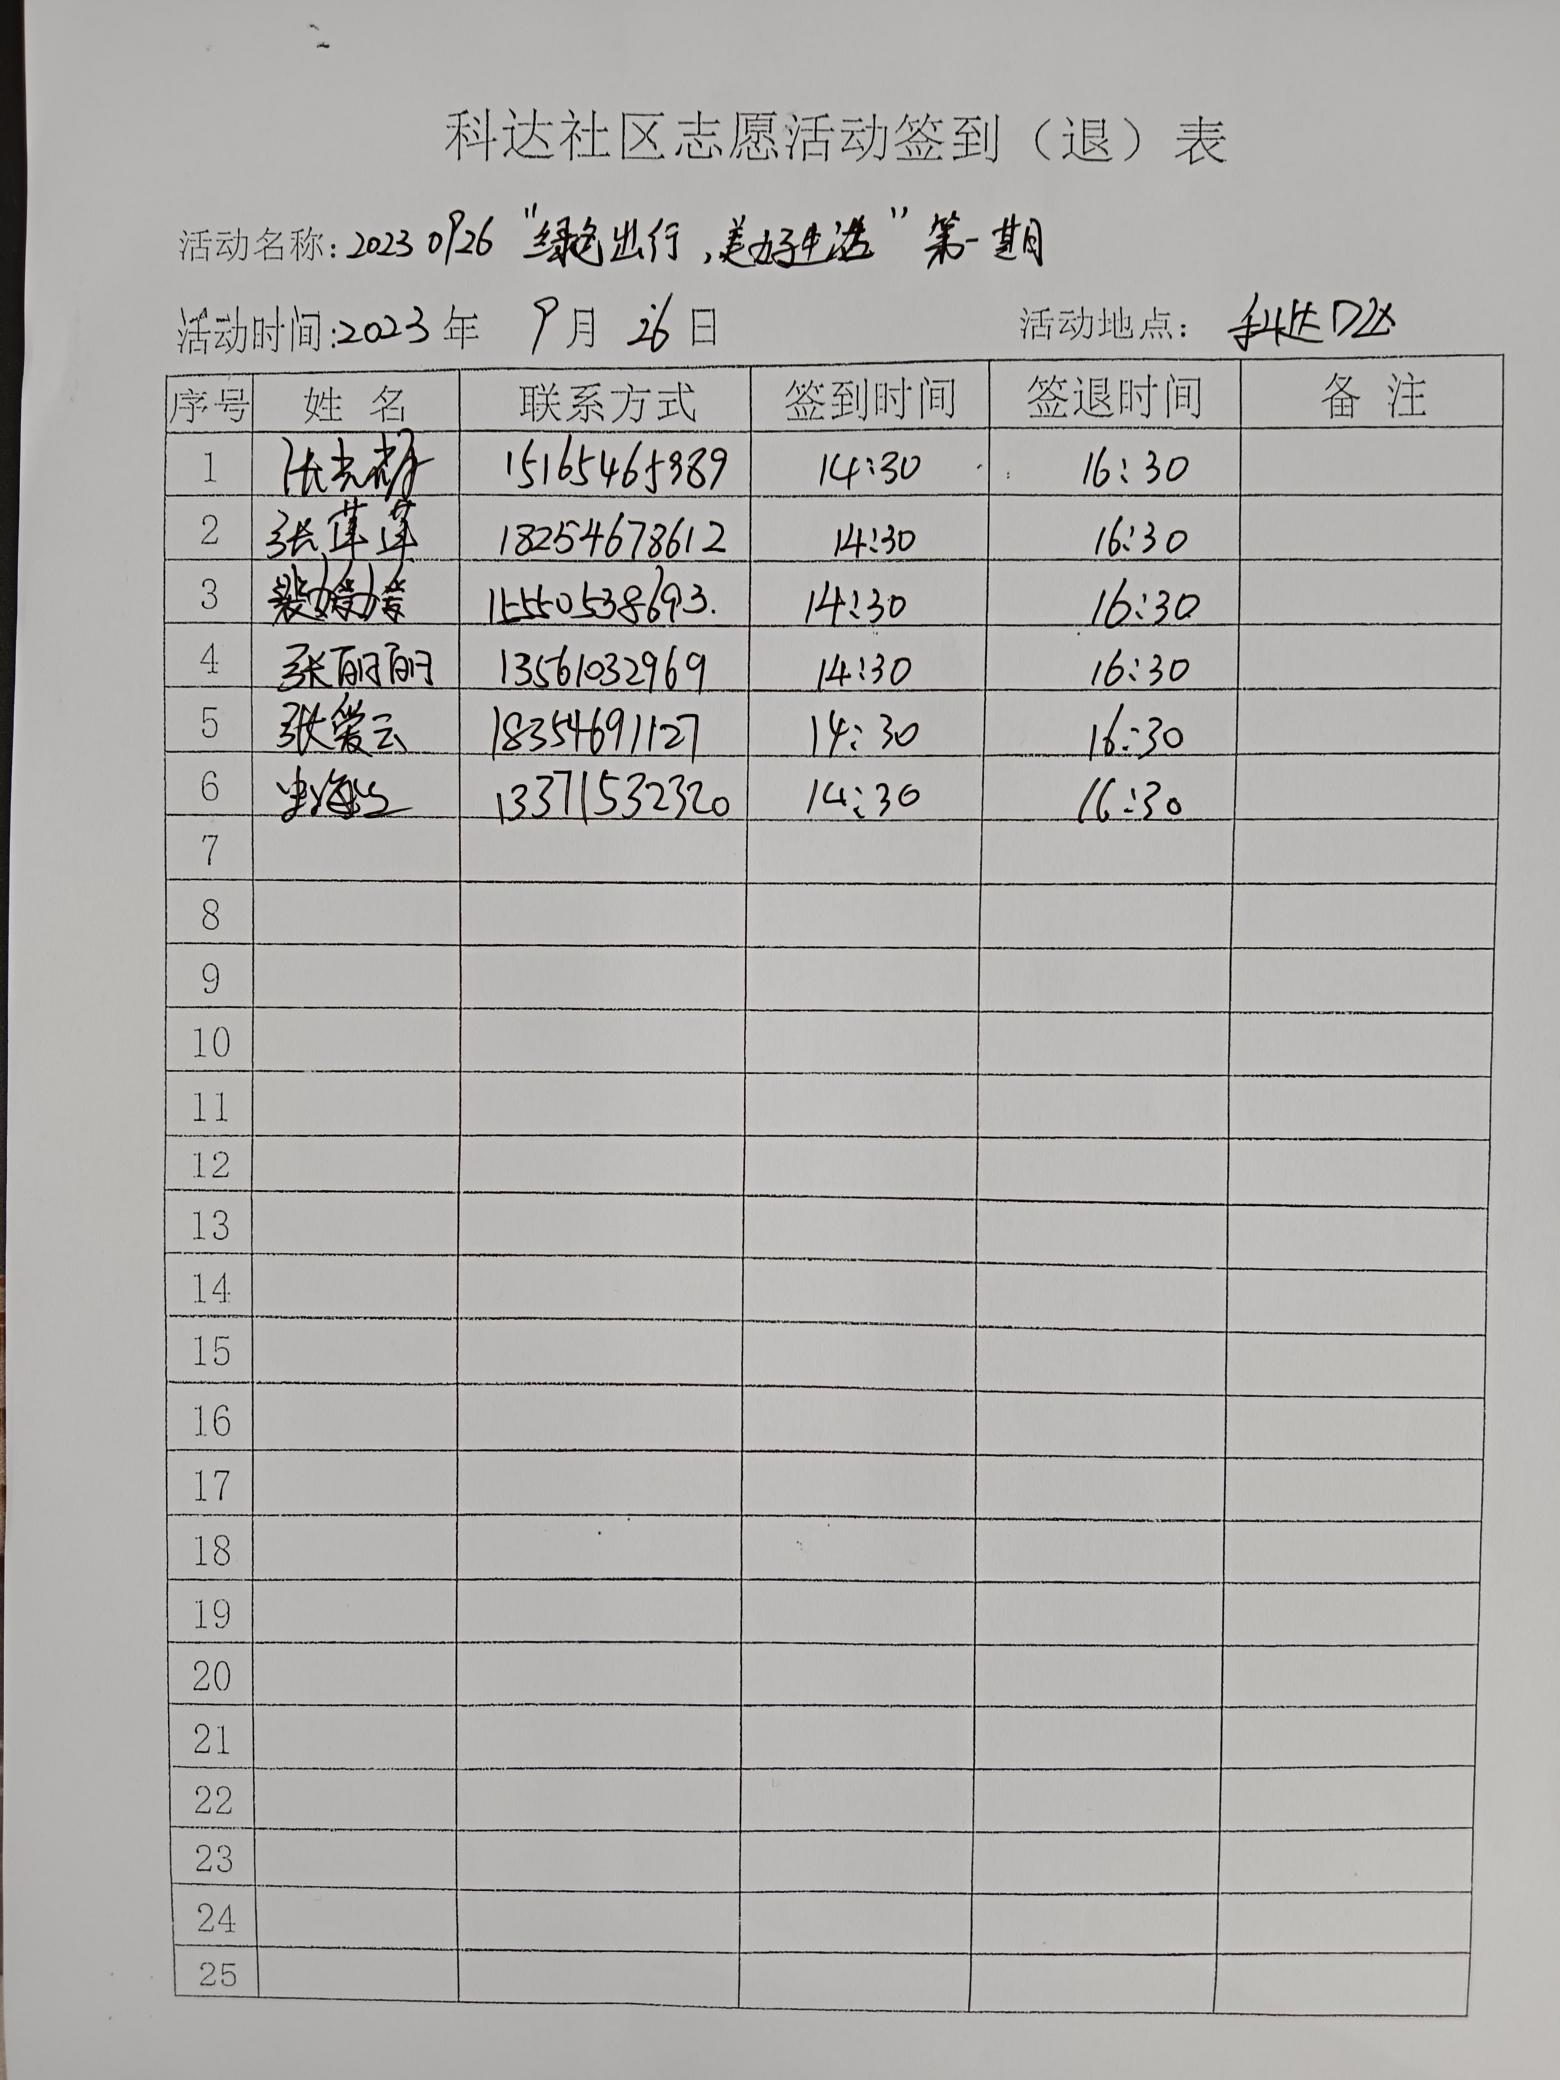 科达社区志愿活动签到（退）表
活动名称: 20230926 “绿色出行，美好生活” 第一期
活动时间: 2023 年 9 月 26 日 活动地点： 科达D区
序号 姓 名 联系方式 签到时间 签退时间 备 注
1 张志 15165465389 14:30 16:30
2 张莲莲 18254678612 14:30 16:30
3 裴媛媛 15550538693. 14:30 16:30
4 张丽丽 13561032969 14:30 16:30
5 张爱云 18354691127 14:30 16:30
6 13371532320 14:30 16:30
7
8
9
10
11
12
13
14
15
16
17
18
19
20
21
22
23
24
25